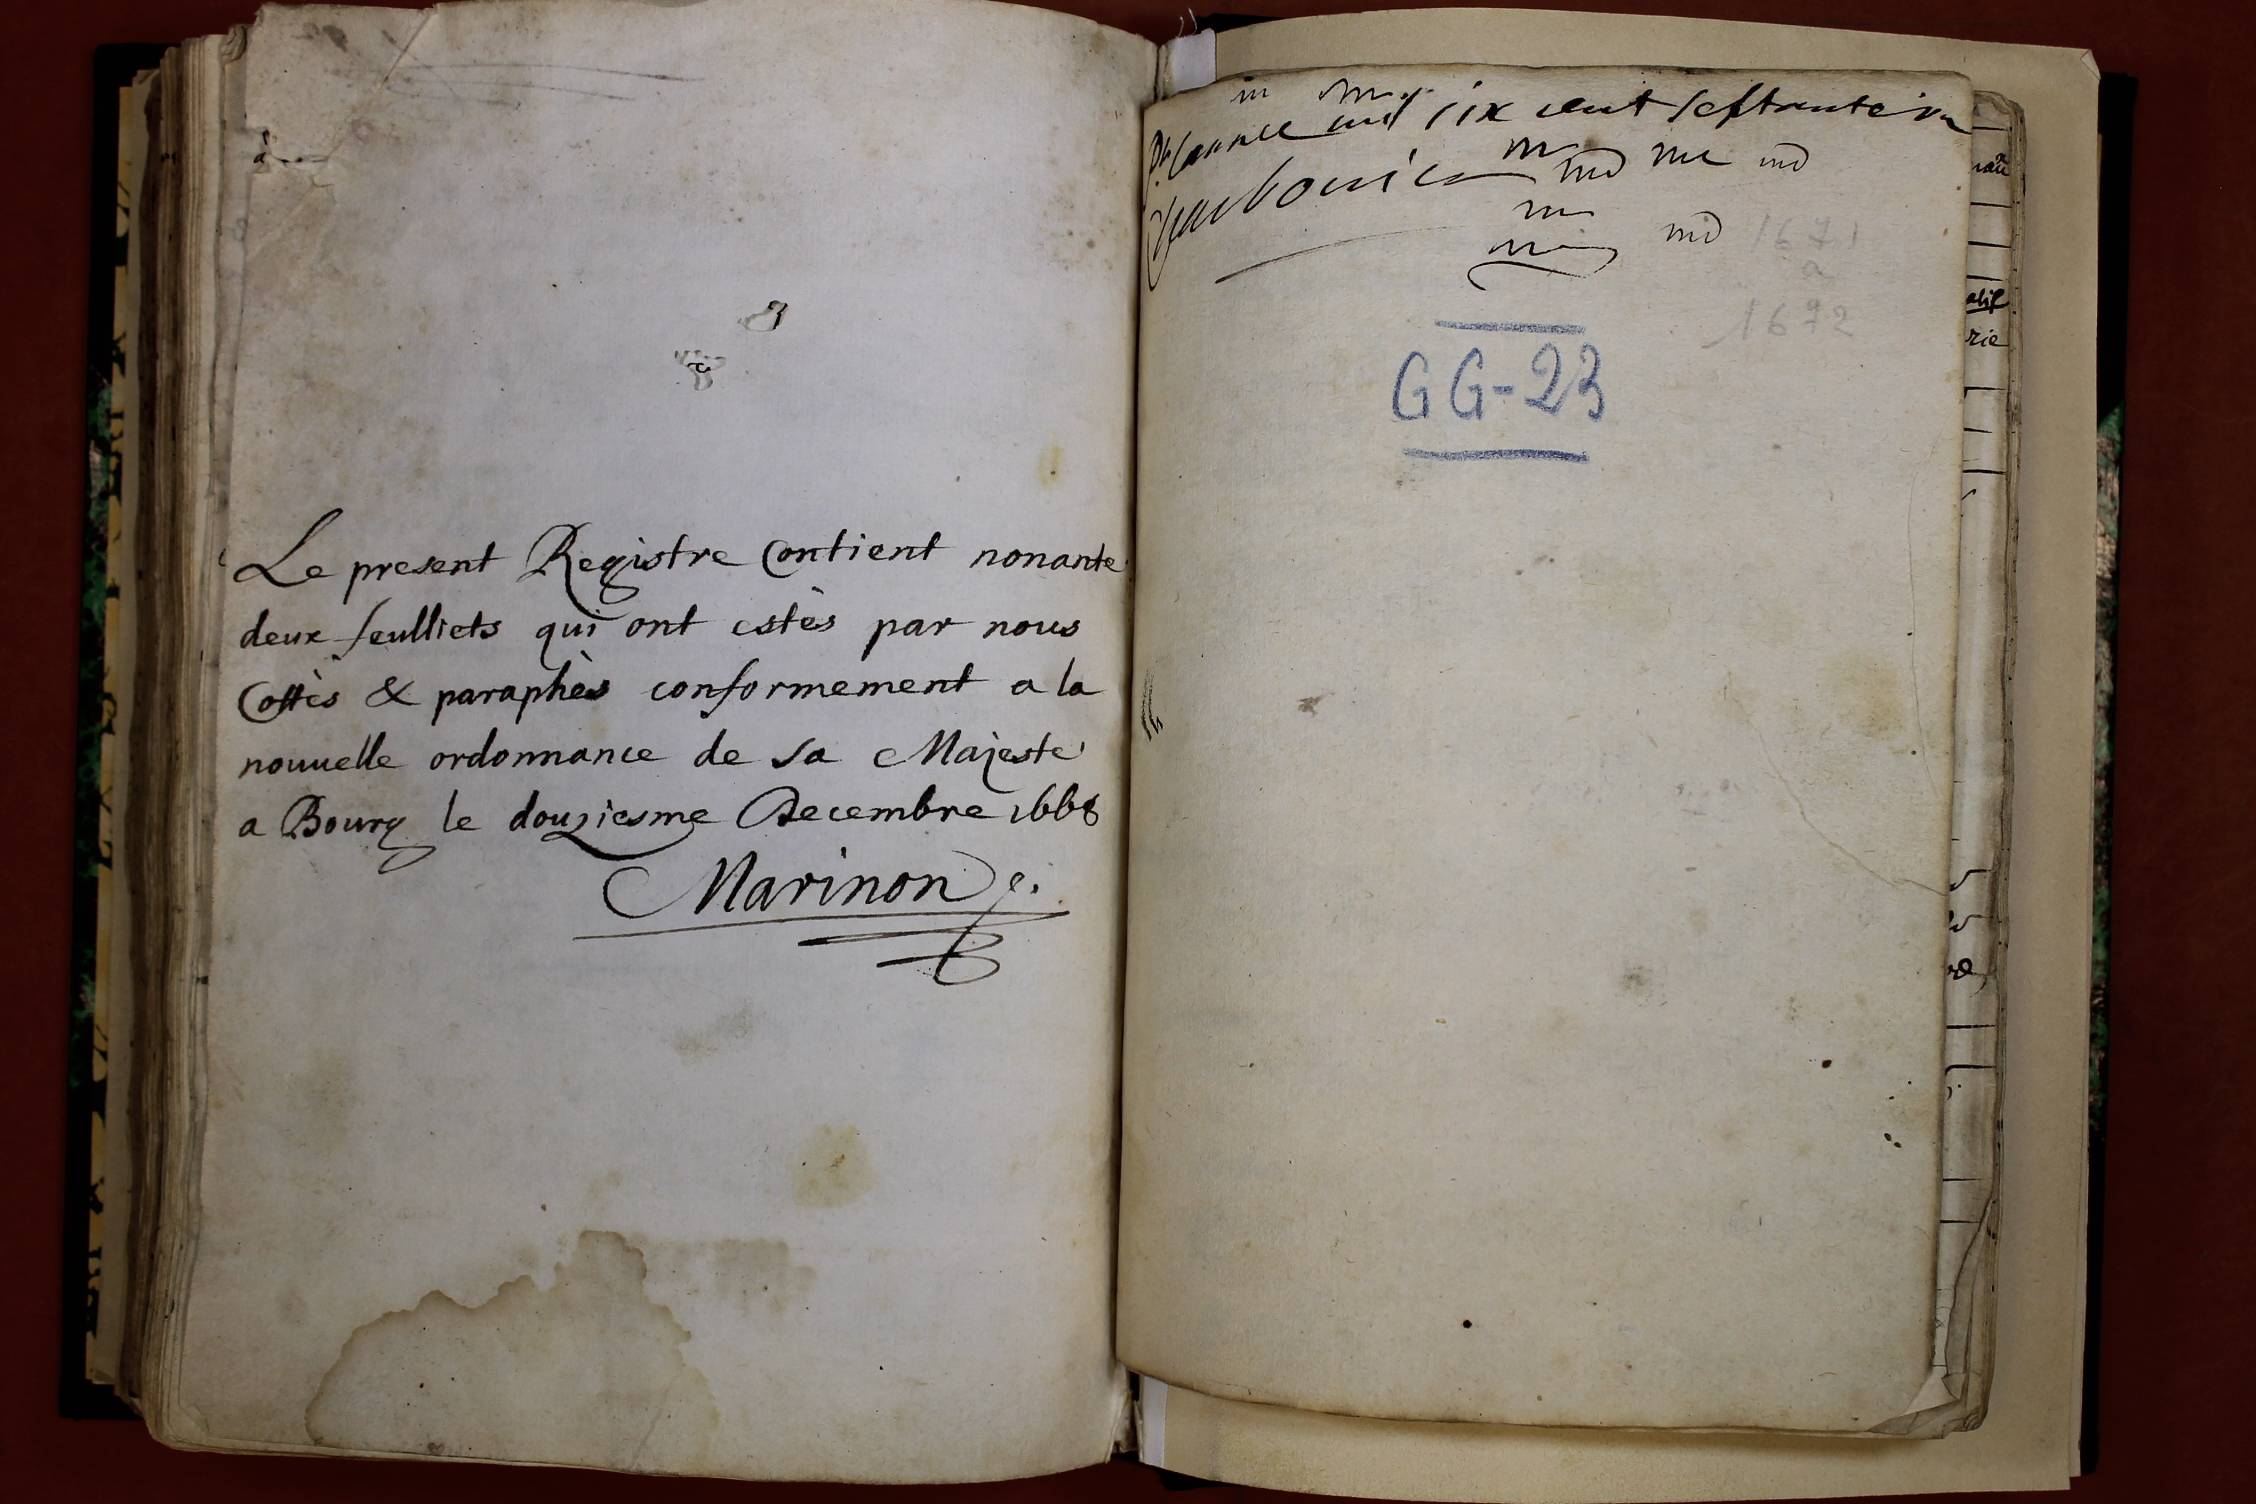 Le present Registre Contient nonante
deux feulliets qui ont estès par nous
Cottès & paraphès conformement a la
nouuelle ordonnance de sa Majeste
a Bourg le douziesme Decembre 1668
Marinon
mil six cent septante
1671
a
1672
GG-23